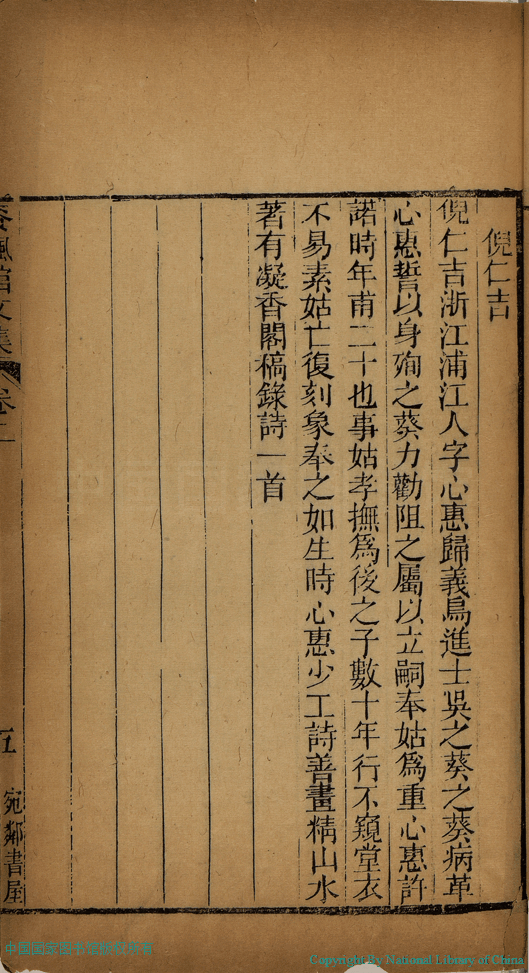 倪仁吉
倪仁吉浙江浦江人字心惠歸義烏進士吳之葵之葵病革
心惠誓以身殉之葵力勸阻之屬以立嗣奉姑爲重心惠許
諾時年甫二十也事姑孝撫爲後之子數十年行不窺堂衣
不易素姑亡復刻象奉之如生時心惠少工詩善畫精山水
著有凝香閣稿錄詩一首
文集
卷二
五
宛鄰書屋
中国国家图书馆版权所有
Copyright by National Library of China